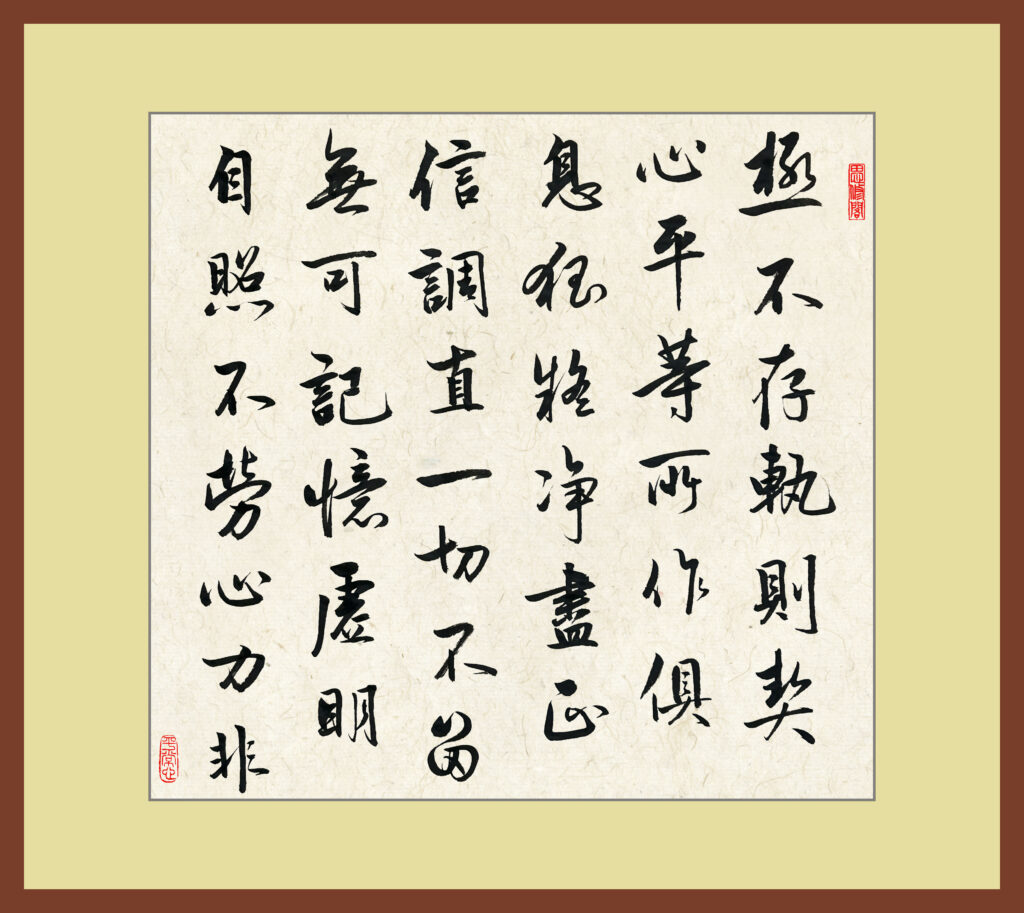 思修閣
極不存軌則契
心平等所作俱
息狐疑净盡正
信調直一切不留
無可記憶虛明
自照不勞心力非
平常心